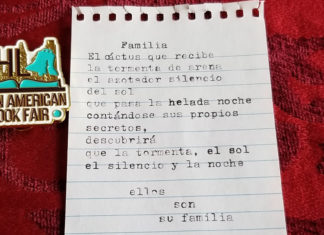 AN AMERICAN
OOK FAIR
Familia
El cáctus que recibe
la tormenta de arena
el azotador silencio
del sol
que pasa la helada noche
contándose sus propios
secretos,
descubrirá
que la tormenta, el sol
el silencio y la noche
ellos
son
su familia